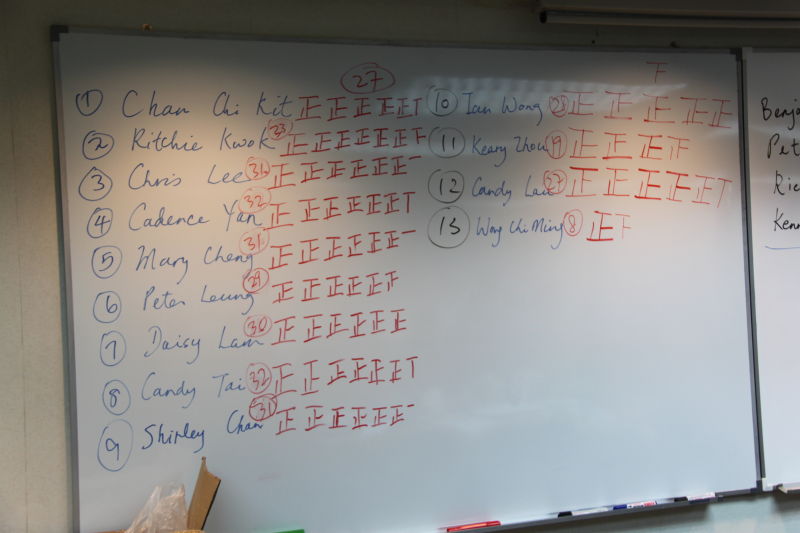 27
① Chan Chi Kit 正正正正正丅
② Ritchie Kwok 33 正正正正正正下
③ Chris Lee 31 正正正正正正一
④ Cadence Yan 32 正正正正正正丅
⑤ Mary Cheng 31 正正正正正正一
⑥ Peter Leung 29 正正正正正
⑦ Daisy Lam 30 正正正正正正
⑧ Candy Tai 32 正正正正正正丅
⑨ Shirley Chan 31 正正正正正正一
下
⑩ Ian Wong 28 正正正正正
⑪ Keary Zhou 19 正正正
⑫ Candy Lau 27 正正正正正丅
⑬ Wong Chi Ming 8 正下
Benja
Pet
Ric
Kenn